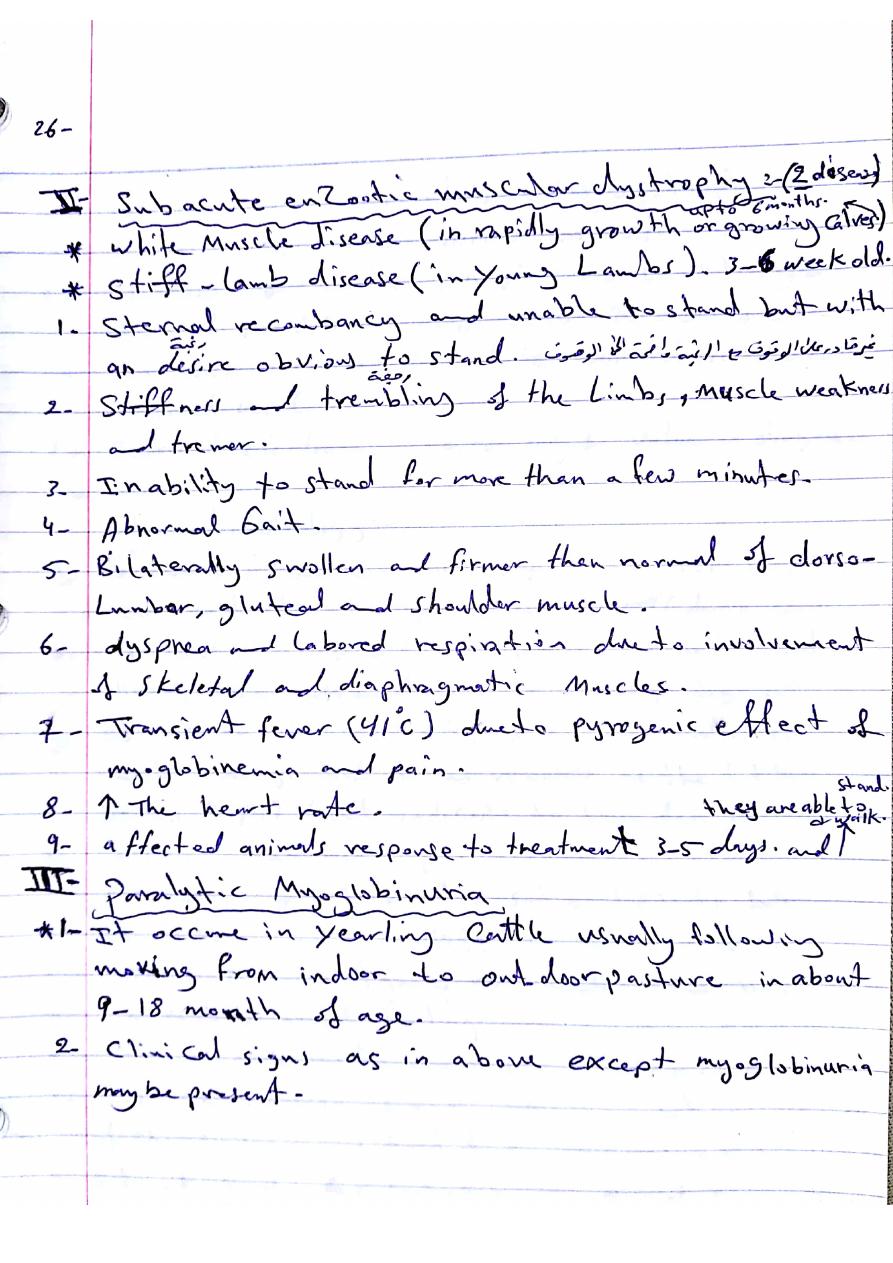 26-
II- Subacute enzootic muscular dystrophy :- (2 diseas)
upto 6 months.
* white Muscle disease (in rapidly growth or growing Calves)
* Stiff-lamb disease (in young Lambs). 3-6 week old.
1- Sternal recumbancy and unable to stand but with
رغبة
an desire obvious to stand. غير قادر على الوقوف مع الرغبة واضحة الى الوقوف
رجفة
2- Stiffness and trembling of the Limbs, Muscle weakness
and tremer.
3- Inability to stand for more than a few minutes.
4- Abnormal Gait.
5- Bilaterally swollen and firmer then normal of dorso-
Lumbar, gluteal and shoulder muscle.
6- dyspnea and labored respiration due to involvement
of skeletal and diaphragmatic Muscles.
7- Transient fever (41°c) due to pyrogenic effect of
myoglobinemia and pain.
stand.
8- ↑ The heart rate. they are able to
& walk.
9- affected animals response to treatment 3-5 days. and ↑
III- Paralytic Myoglobinuria
*1- It occure in yearling Cattle usually following
moving from indoor to outdoor pasture in about
9-18 month of age.
2- Clinical signs as in above except myoglobinuria
may be present.